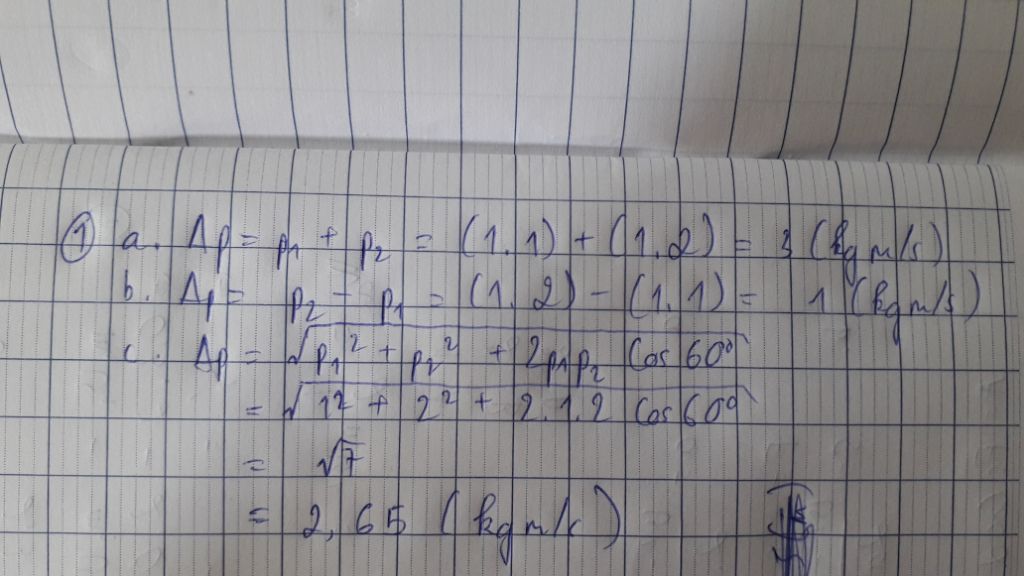 ① a. Δp = p₁ + p₂ = (1.1) + (1.2) = 3 (kg m/s)
b. Δp = p₂ - p₁ = (1.2) - (1.1) = 1 (kg m/s)
c. Δp = √(p₁² + p₂² + 2p₁p₂ cos 60°)
= √(1² + 2² + 2.1.2 cos 60°)
= √7
= 2,65 (kg m/s)